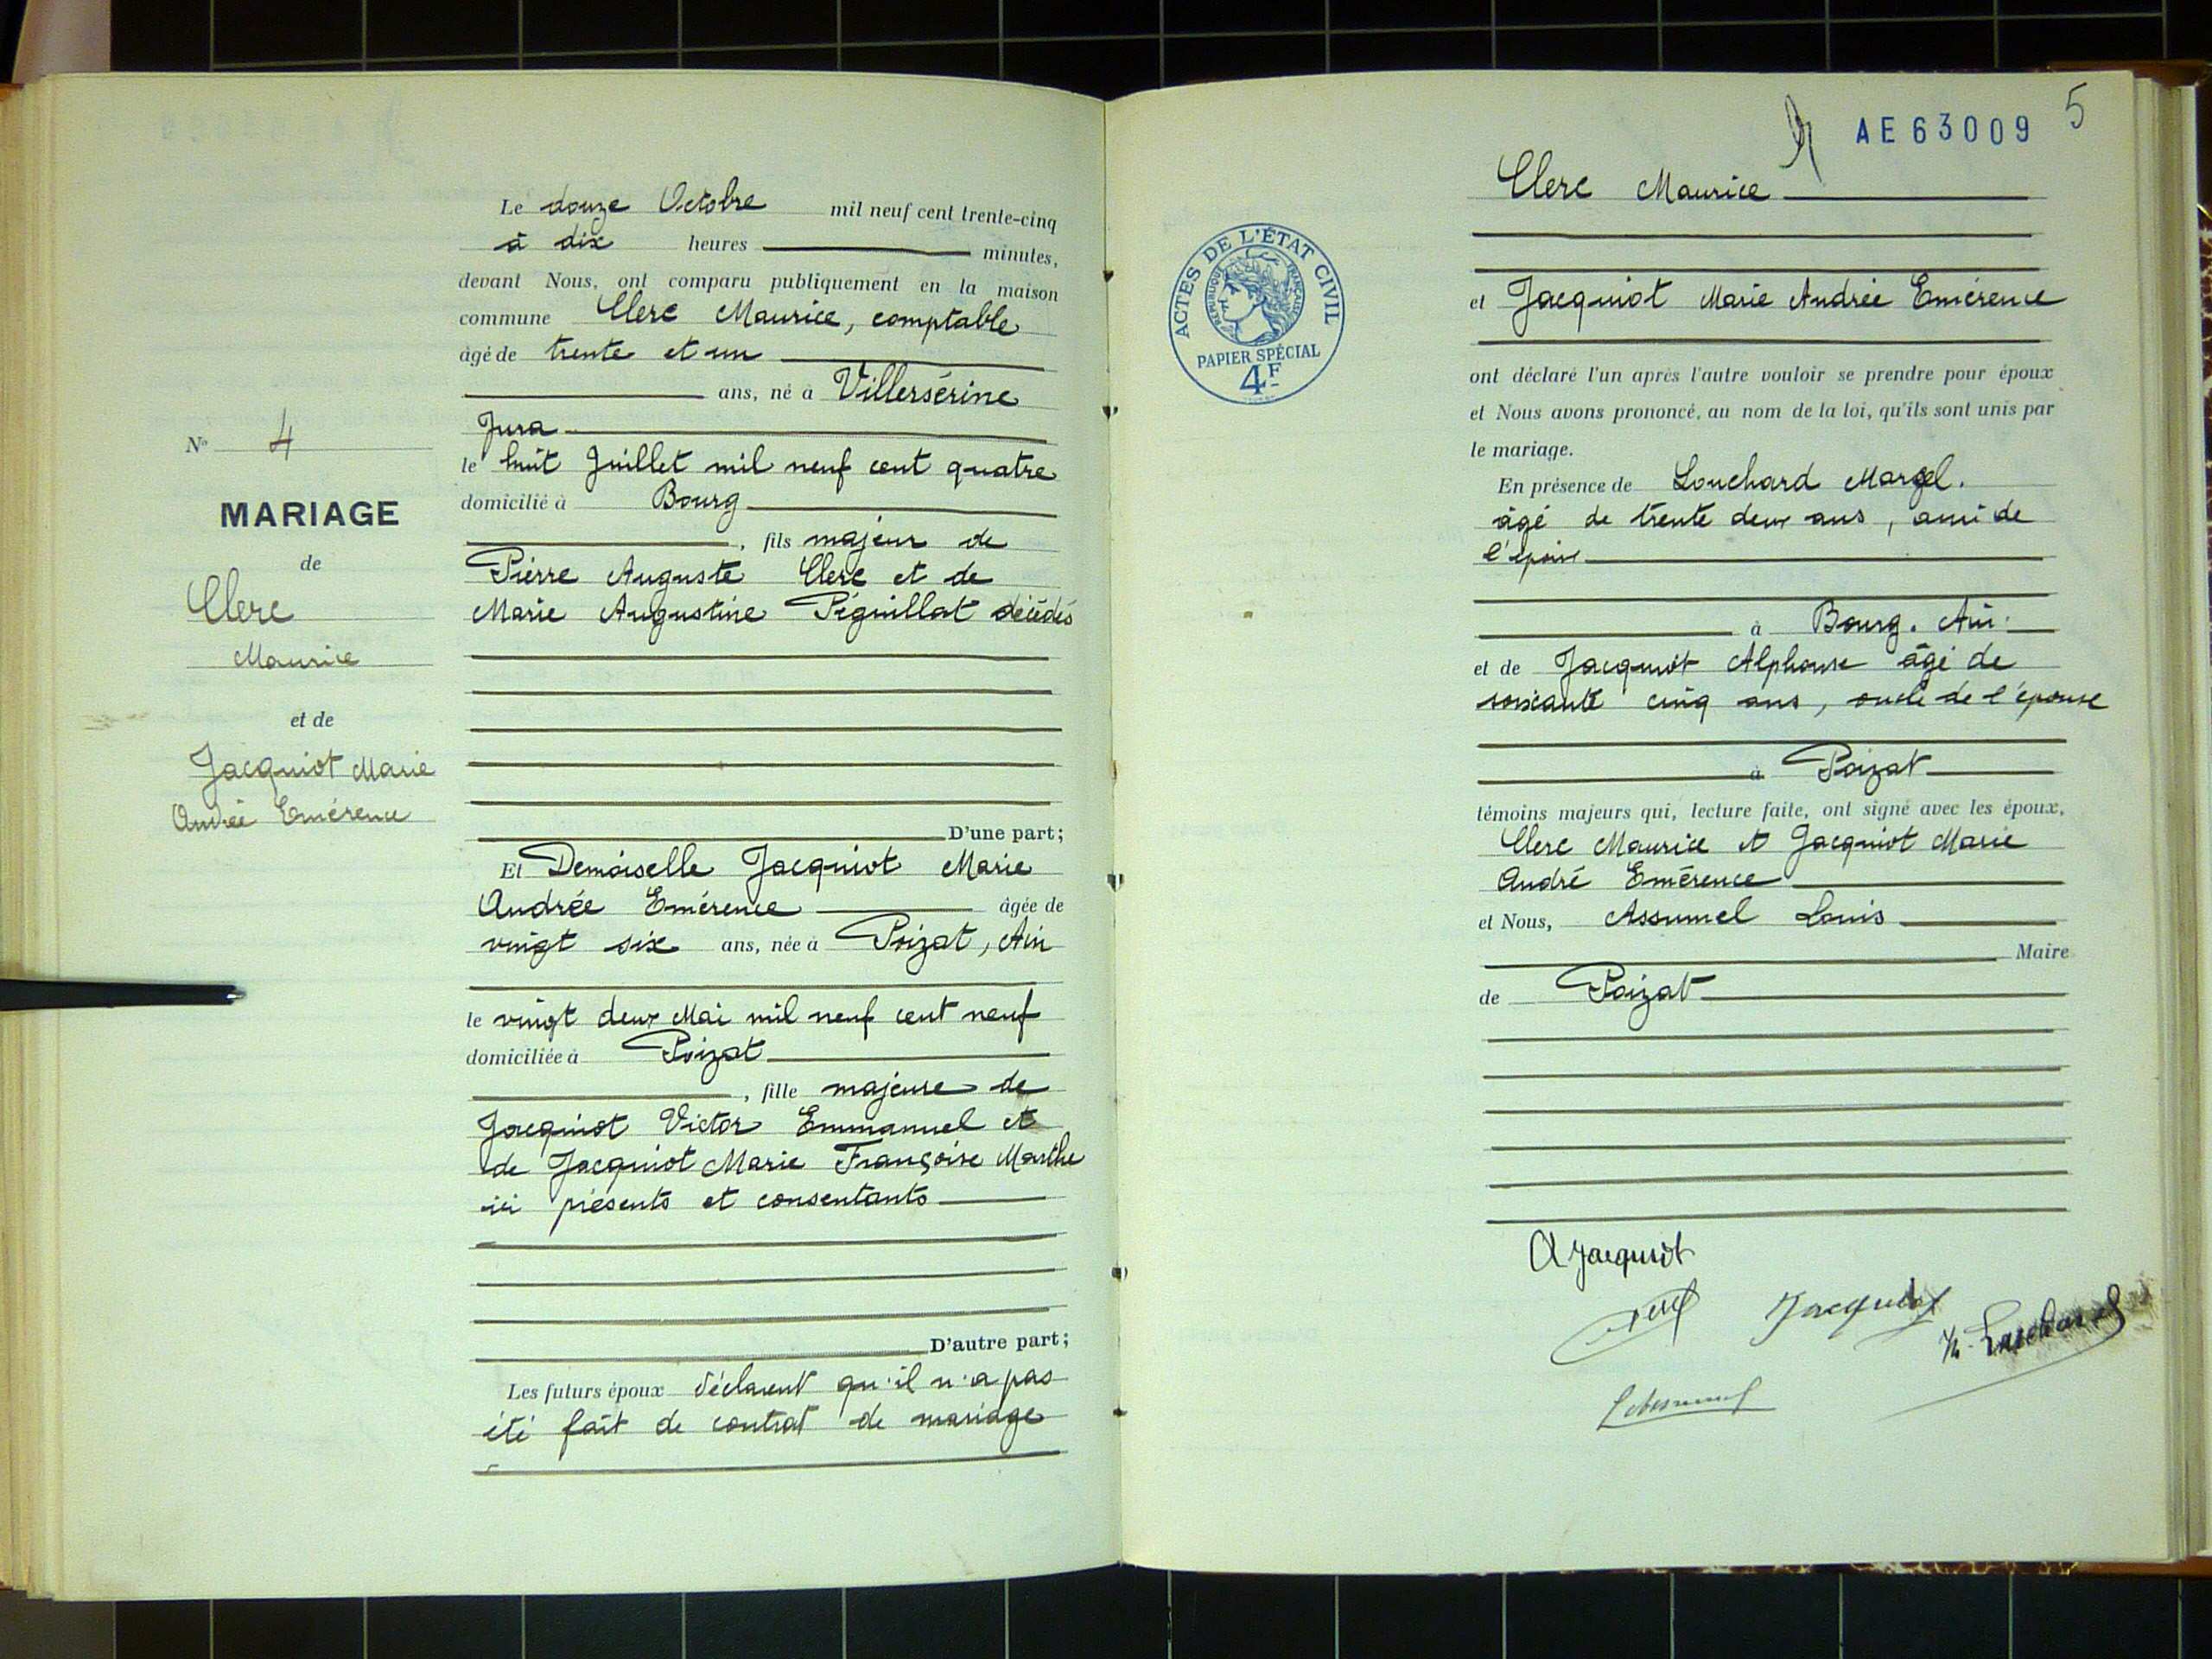 Le douze Octobre mil neuf cent trente-cinq
à dix heures minutes,
devant Nous, ont comparu publiquement en la maison
commune Clerc Maurice, comptable
âgé de trente et un
ans, né à Villersérine
Jura
le huit Juillet mil neuf cent quatre
domicilié à Bourg
, fils majeur de
Pierre Auguste Clerc et de
Marie Augustine Péguillat décédés
D'une part;
Et Demoiselle Jacquiot Marie
Andrée Emérence âgée de
vingt six ans, née à Poizat, Ain
le vingt deux Mai mil neuf cent neuf
domiciliée à Poizat
, fille majeure de
Jacquiot Victor Emmanuel et
de Jacquiot Marie Françoise Marthe
ici présents et consentants
D'autre part;
Les futurs époux déclarent qu'il n'a pas
été fait de contrat de mariage
No 4
MARIAGE
de
Clerc
Maurice
et de
Jacquiot Marie
Andrée Emérence
AE63009 5
Clerc Maurice
et Jacquiot Marie Andrée Emérence
ACTES DE L'ÉTAT CIVIL
RÉPUBLIQUE FRANÇAISE
PAPIER SPÉCIAL
4F
ont déclaré l'un après l'autre vouloir se prendre pour époux
et Nous avons prononcé, au nom de la loi, qu'ils sont unis par
le mariage.
En présence de Louchard Marcel.
âgé de trente deux ans, ami de
l'époux
à Bourg. Ain.
et de Jacquiot Alphonse âgé de
soixante cinq ans, oncle de l'épouse
à Poizat
témoins majeurs qui, lecture faite, ont signé avec les époux,
Clerc Maurice et Jacquiot Marie
André Emérence
et Nous, Assumel Louis
Maire
de Poizat
A Jacquiot
Jacquiot
M. Louchard